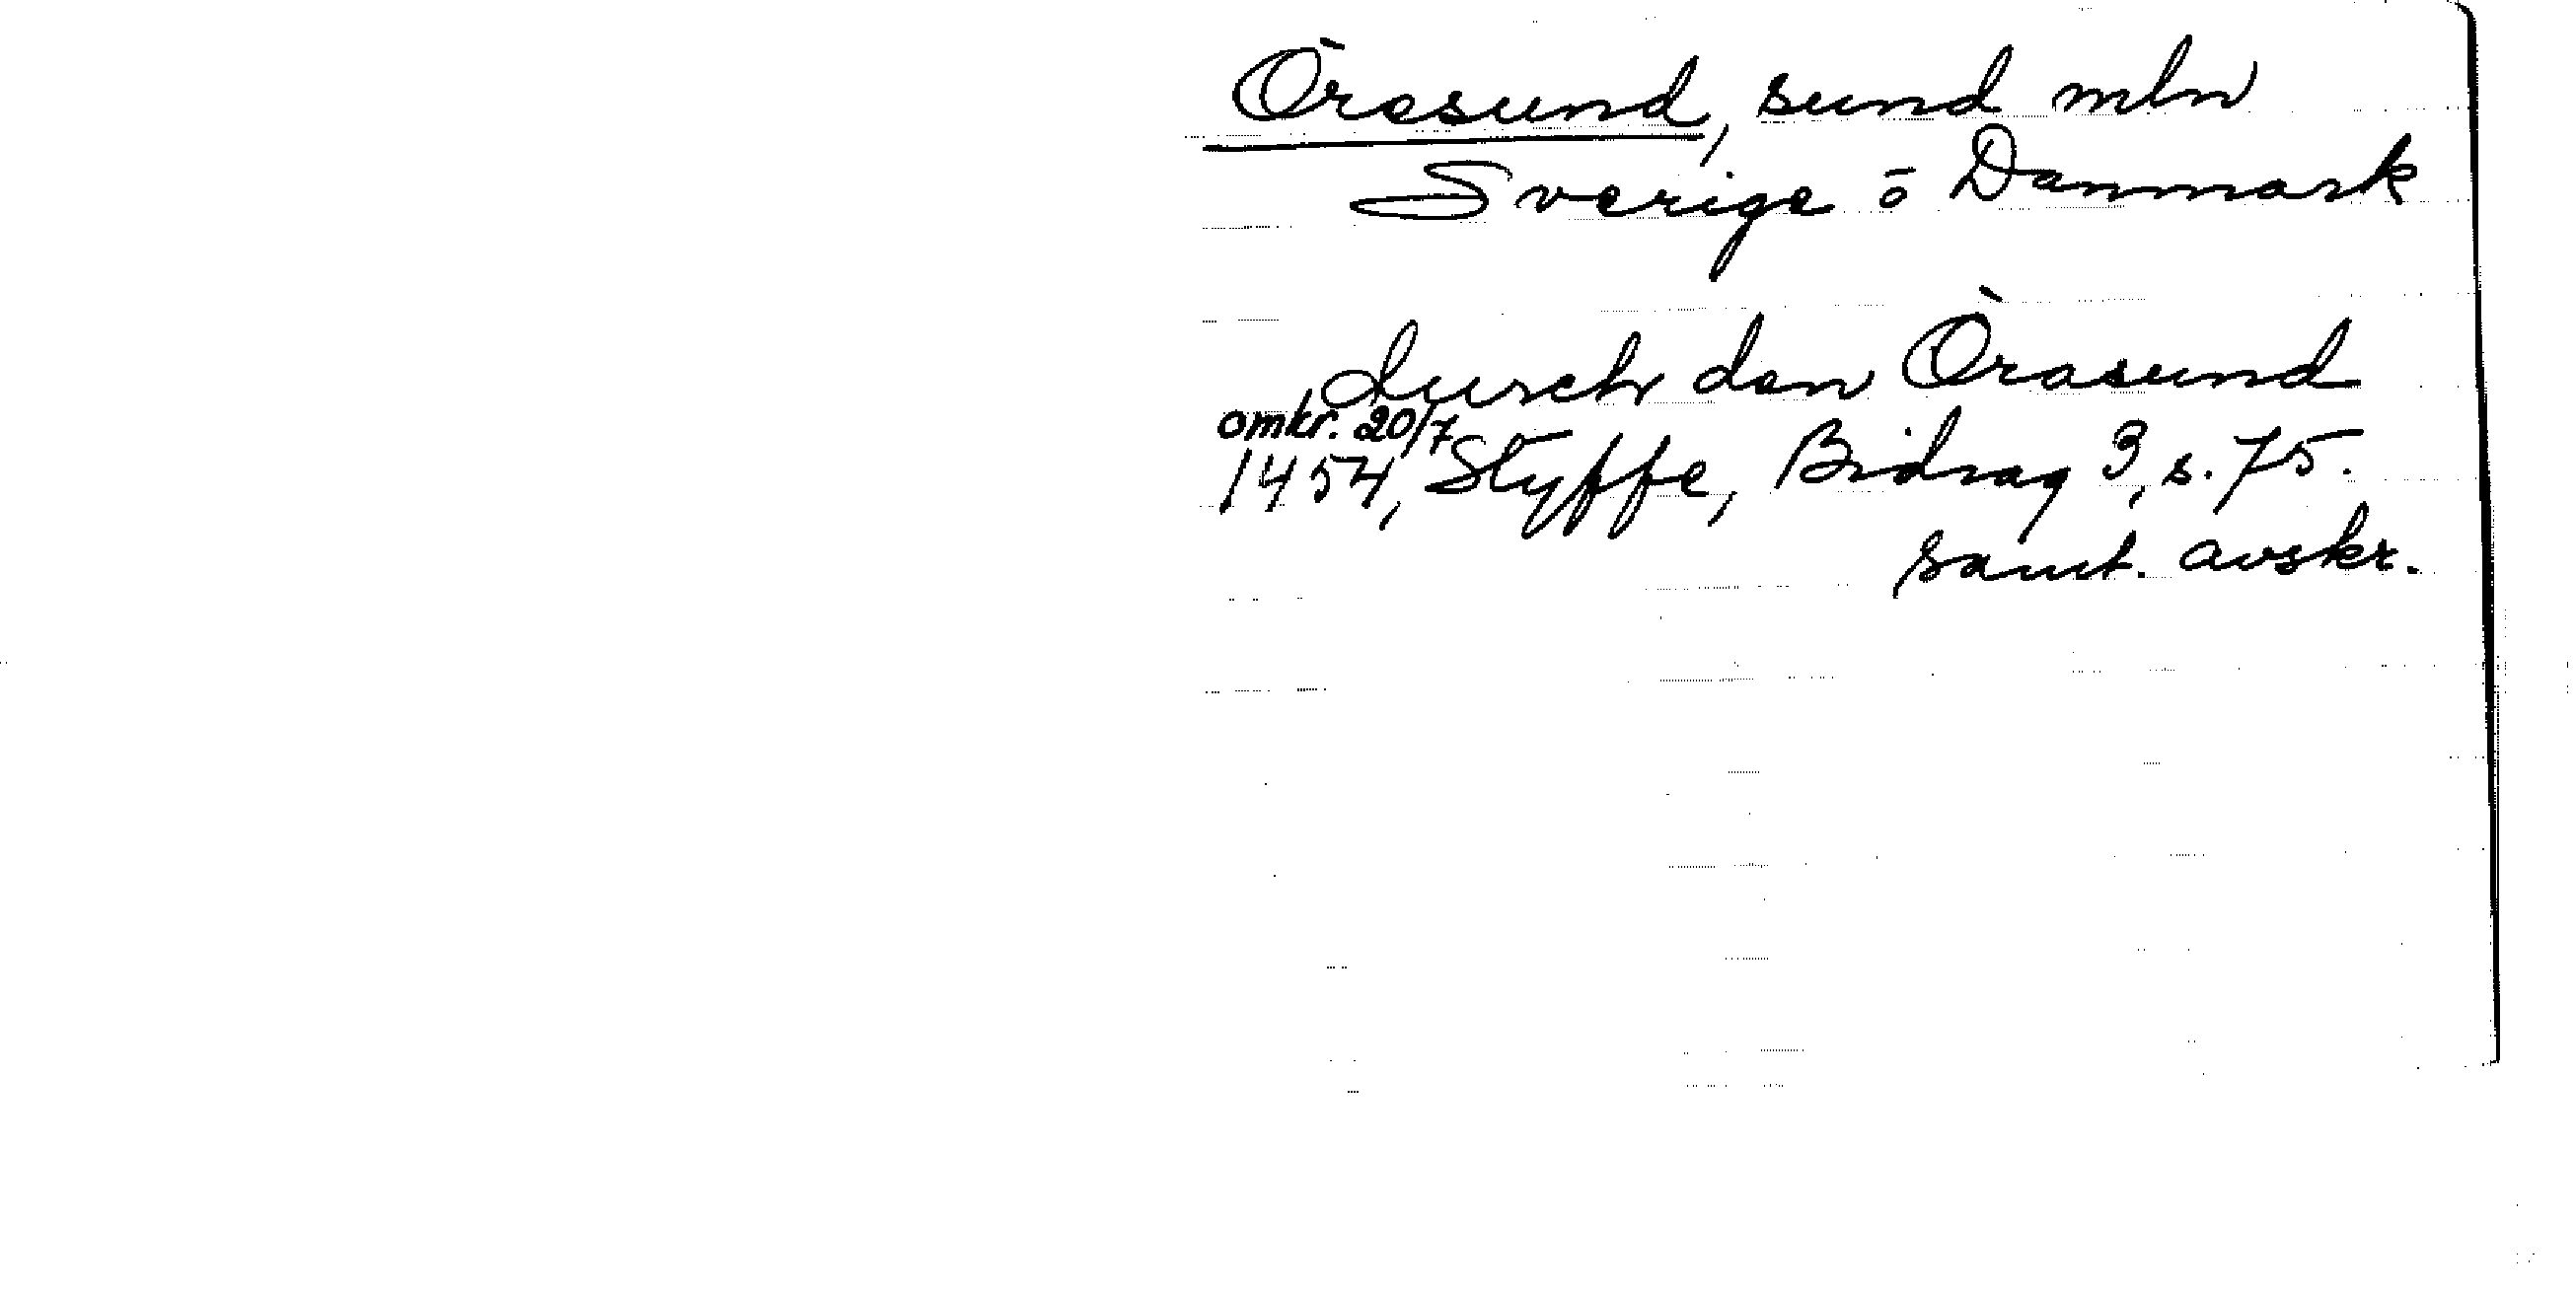 Öresund, sund mln
Sverige o Danmark
durch den Örasund
omkr. 20/7
1454, Styffe, Bidrag 3, s. 75.
samt. avskr.